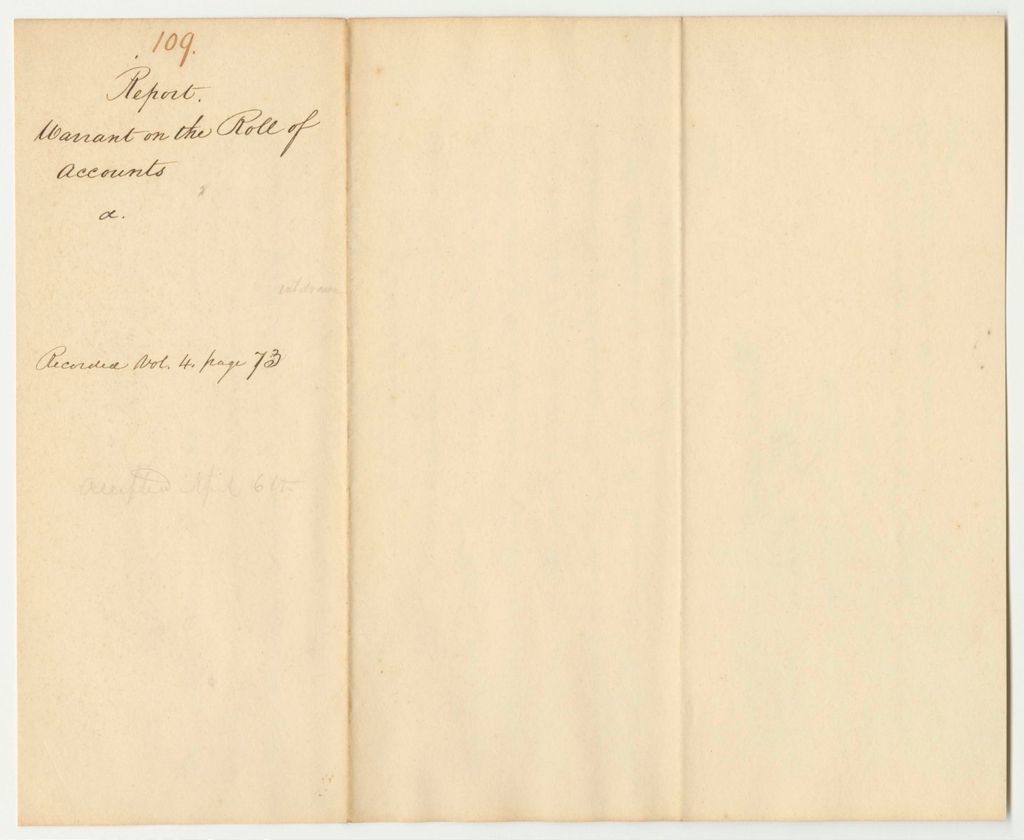 109.
Report.
Warrant on the Roll of
Accounts
a.
Recorded Vol. 4. page 73
Accepted April 6th